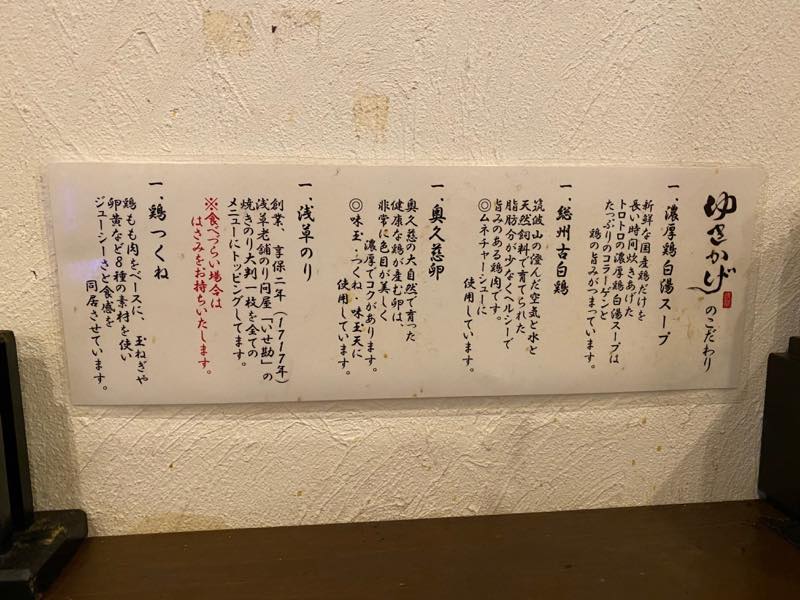 ゆきかげ
のこだわり
一、濃厚鶏白湯スープ
新鮮な国産鶏だけを
長い時間炊きあげた
トロトロの濃厚鶏白湯スープは
たっぷりのコラーゲンと
鶏の旨みがつまっています。
一、総州古白鶏
筑波山の澄んだ空気と水と
天然飼料で育てられた
脂肪分が少なくヘルシーで
旨みのある鶏肉です。
◎ムネチャーシューに
使用しています。
一、奥久慈卵
奥久慈の大自然で育った
健康な鶏が産む卵は、
濃厚でコクがあります。
非常に色目が美しく
◎味玉・つくね・味玉天に
使用しています。
一、浅草のり
創業、享保二年(1717年)
浅草老舗のり問屋「いせ勘」の
焼きのり大判一枚を全ての
メニューにトッピングしてます。
※食べづらい場合は
はさみをお持ちいたします。
一、鶏つくね
鶏もも肉をベースに、玉ねぎや
卵黄など8種の素材を使い
ジューシーさと食感を
同居させています。